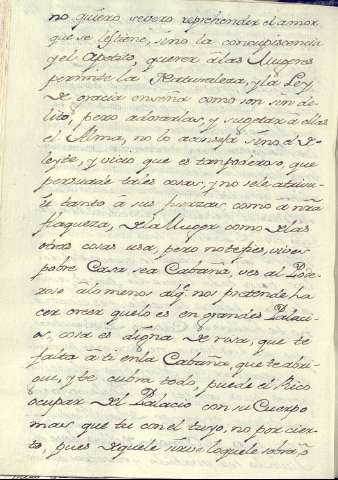 no quiero severo reprehender el amor
que se les tiene, sino la concupiscencia
y el Apetito, querer a las Mugeres
permite la Naturaleza, y la Ley
de gracia enseña como son sin de
lito, pero adorarlas, y sugetar a ellas
el Alma, no lo aconseja sino el De
leyte, y vicio que es tan poderoso, que
persuade tales cosas, y no se le atribu
ie tanto a sus fuerzas como a nrã
flaqueza, de la Muger como de las
otras cosas usa, pero no te fies, vives
pobre Casa sea Cabaña, ves al Pode
roso ò a lo menos alg.º nos pretende ha
cer creer que lo es en grandes Palaci
os, cosa es digna de risa, que te
falta a ti en la Cabaña, que te abri
gue, y te cubra todo, puede el Rico
ocupar del Palacio con su Cuerpo
mas que tu con el tuyo, no por cier
to, pues de que le sirve lo que le sobra, o